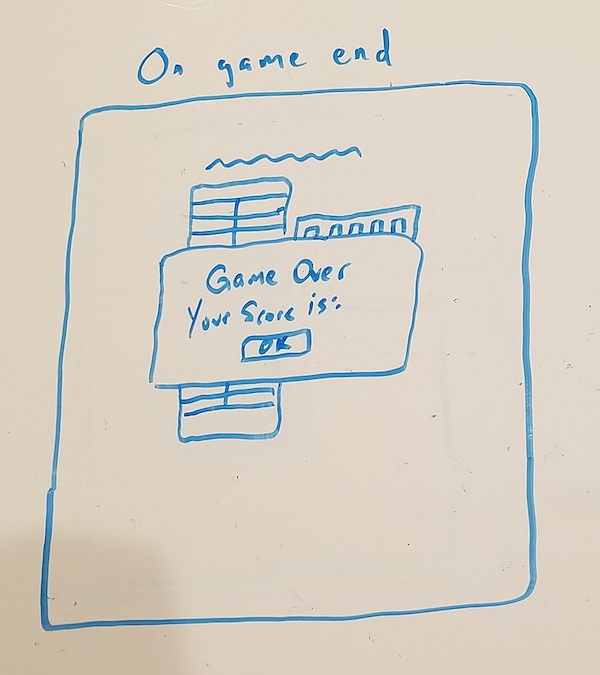 On game end
Game Over
Your Score is:
OK